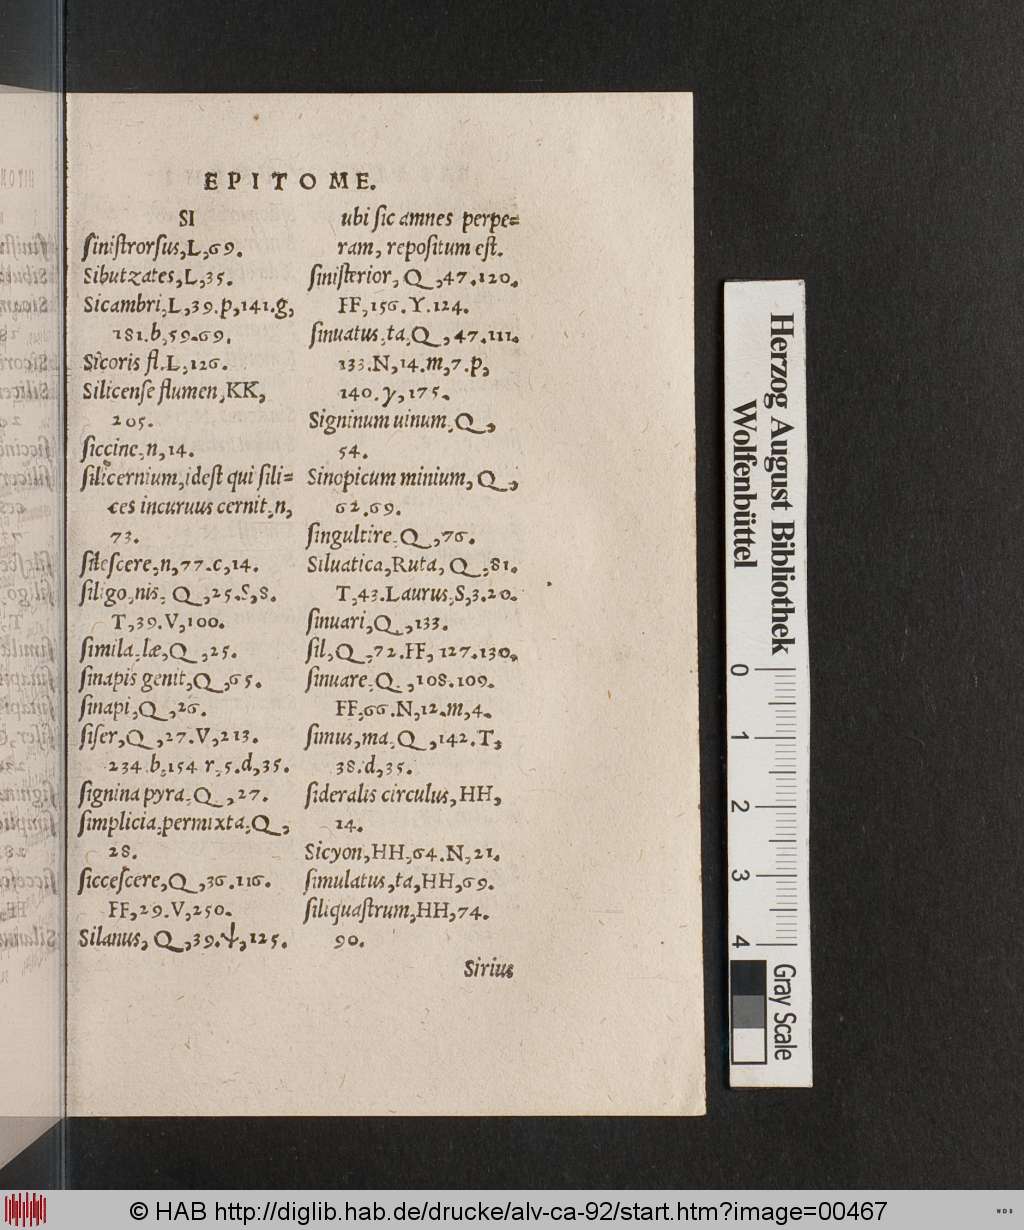 EPITOME.
SI
ſiniſtrorſus,L,69.
Sibutzates,L,35.
Sicambri,L,39.p,141.g,
181.b,59.69.
Sicoris fl.L,126.
Silicenſe flumen,KK,
205.
ſiccine,n,14.
ſilicernium,ideſt qui ſili=
ces incuruus cernit,n,
73.
ſileſcere,n,77.c,14.
ſiligo,nis, Q,25.S,8.
T,39.V,100.
ſimila,læ,Q,25.
ſinapis genit,Q,65.
ſinapi,Q,26.
ſiſer,Q,27.V,213.
234.b,154 r,5.d,35.
ſignina pyra,Q,27.
ſimplicia,permixta,Q,
28.
ſicceſcere,Q,36.116.
FF,29.V,250.
Silanus, Q,39.ψ,125.
ubi ſic amnes perpe=
ram, repoſitum eſt.
ſiniſterior, Q,47.120.
FF,156.Y.124.
ſinuatus,ta,Q,47.111.
133.N,14.m,7.p,
140.y,175.
Signinum uinum,Q,
54.
Sinopicum minium, Q,
62.69.
ſingultire,Q,76.
Siluatica,Ruta, Q,81.
T,43.Laurus,S,3.20.
ſinuari,Q,133.
ſil,Q,72.FF, 127.130.
ſinuare,Q,108.109.
FF,66.N,12.m,4.
ſimus,ma,Q,142.T,
38.d,35.
ſideralis circulus,HH,
14.
Sicyon,HH,64.N,21.
ſimulatus,ta,HH,69.
ſiliquaſtrum,HH,74.
90.
Sirius
Herzog August Bibliothek
Wolfenbüttel
0
1
2
3
4
Gray Scale
© HAB http://diglib.hab.de/drucke/alv-ca-92/start.htm?image=00467